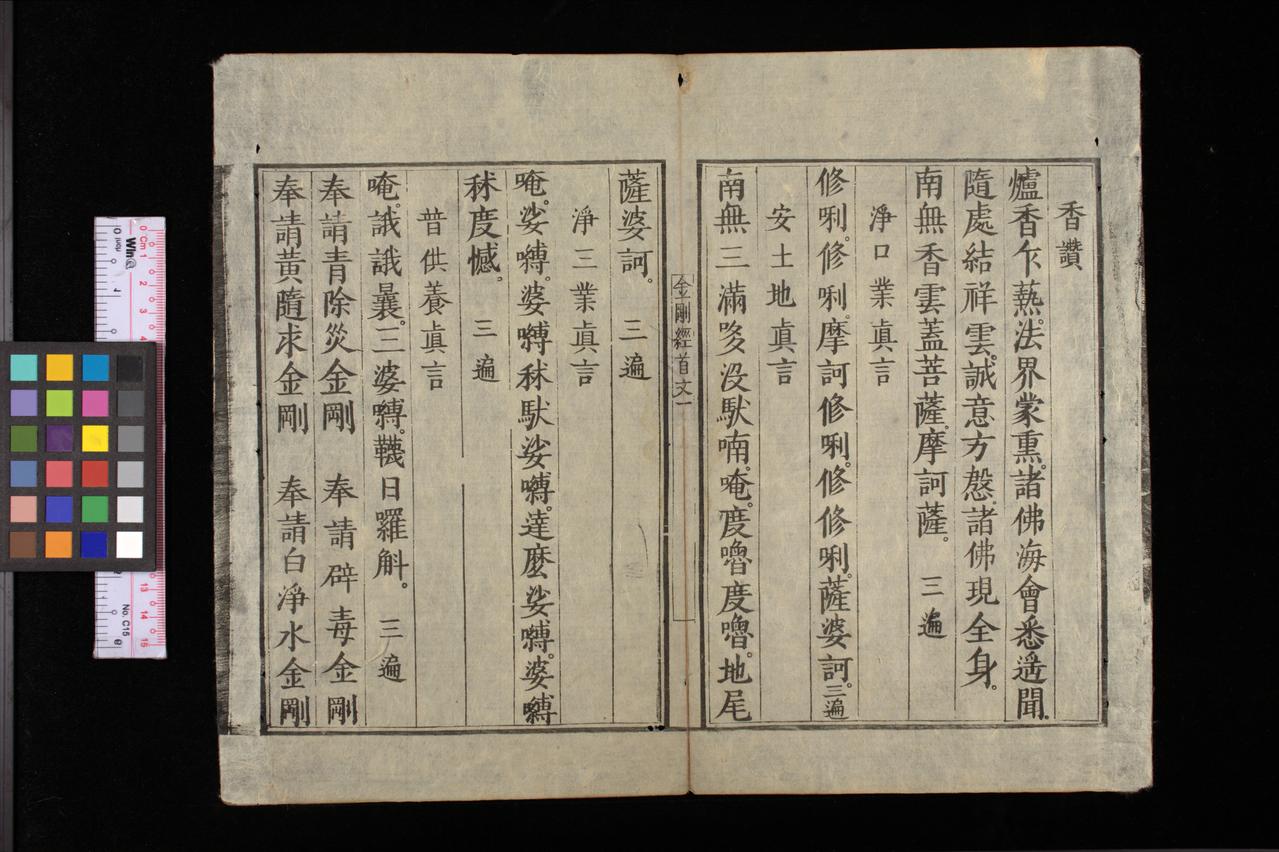 香讚
爐香乍爇。法界蒙熏。諸佛海會悉遥聞。
隨處結祥雲。誠意方慇。諸佛現全身。
南無香雲蓋菩薩。摩訶薩。 三遍
淨口業眞言
修唎。修唎。摩訶修唎。修修唎。薩婆訶。三遍
安土地眞言
南無三滿哆沒馱喃。唵。度嚕度嚕。地尾
金剛經首文一
薩婆訶。 三遍
淨三業眞言
唵。娑嚩。婆嚩秫馱娑嚩。達麼娑嚩。婆嚩
秫度憾。 三遍
普供養眞言
唵。誐誐曩。三婆嚩。韈日羅斛。 三遍
奉請青除災金剛 奉請辟毒金剛
奉請黃隨求金剛 奉請白淨水金剛
Cm 1 2 3 4 13 14 15
No. C15